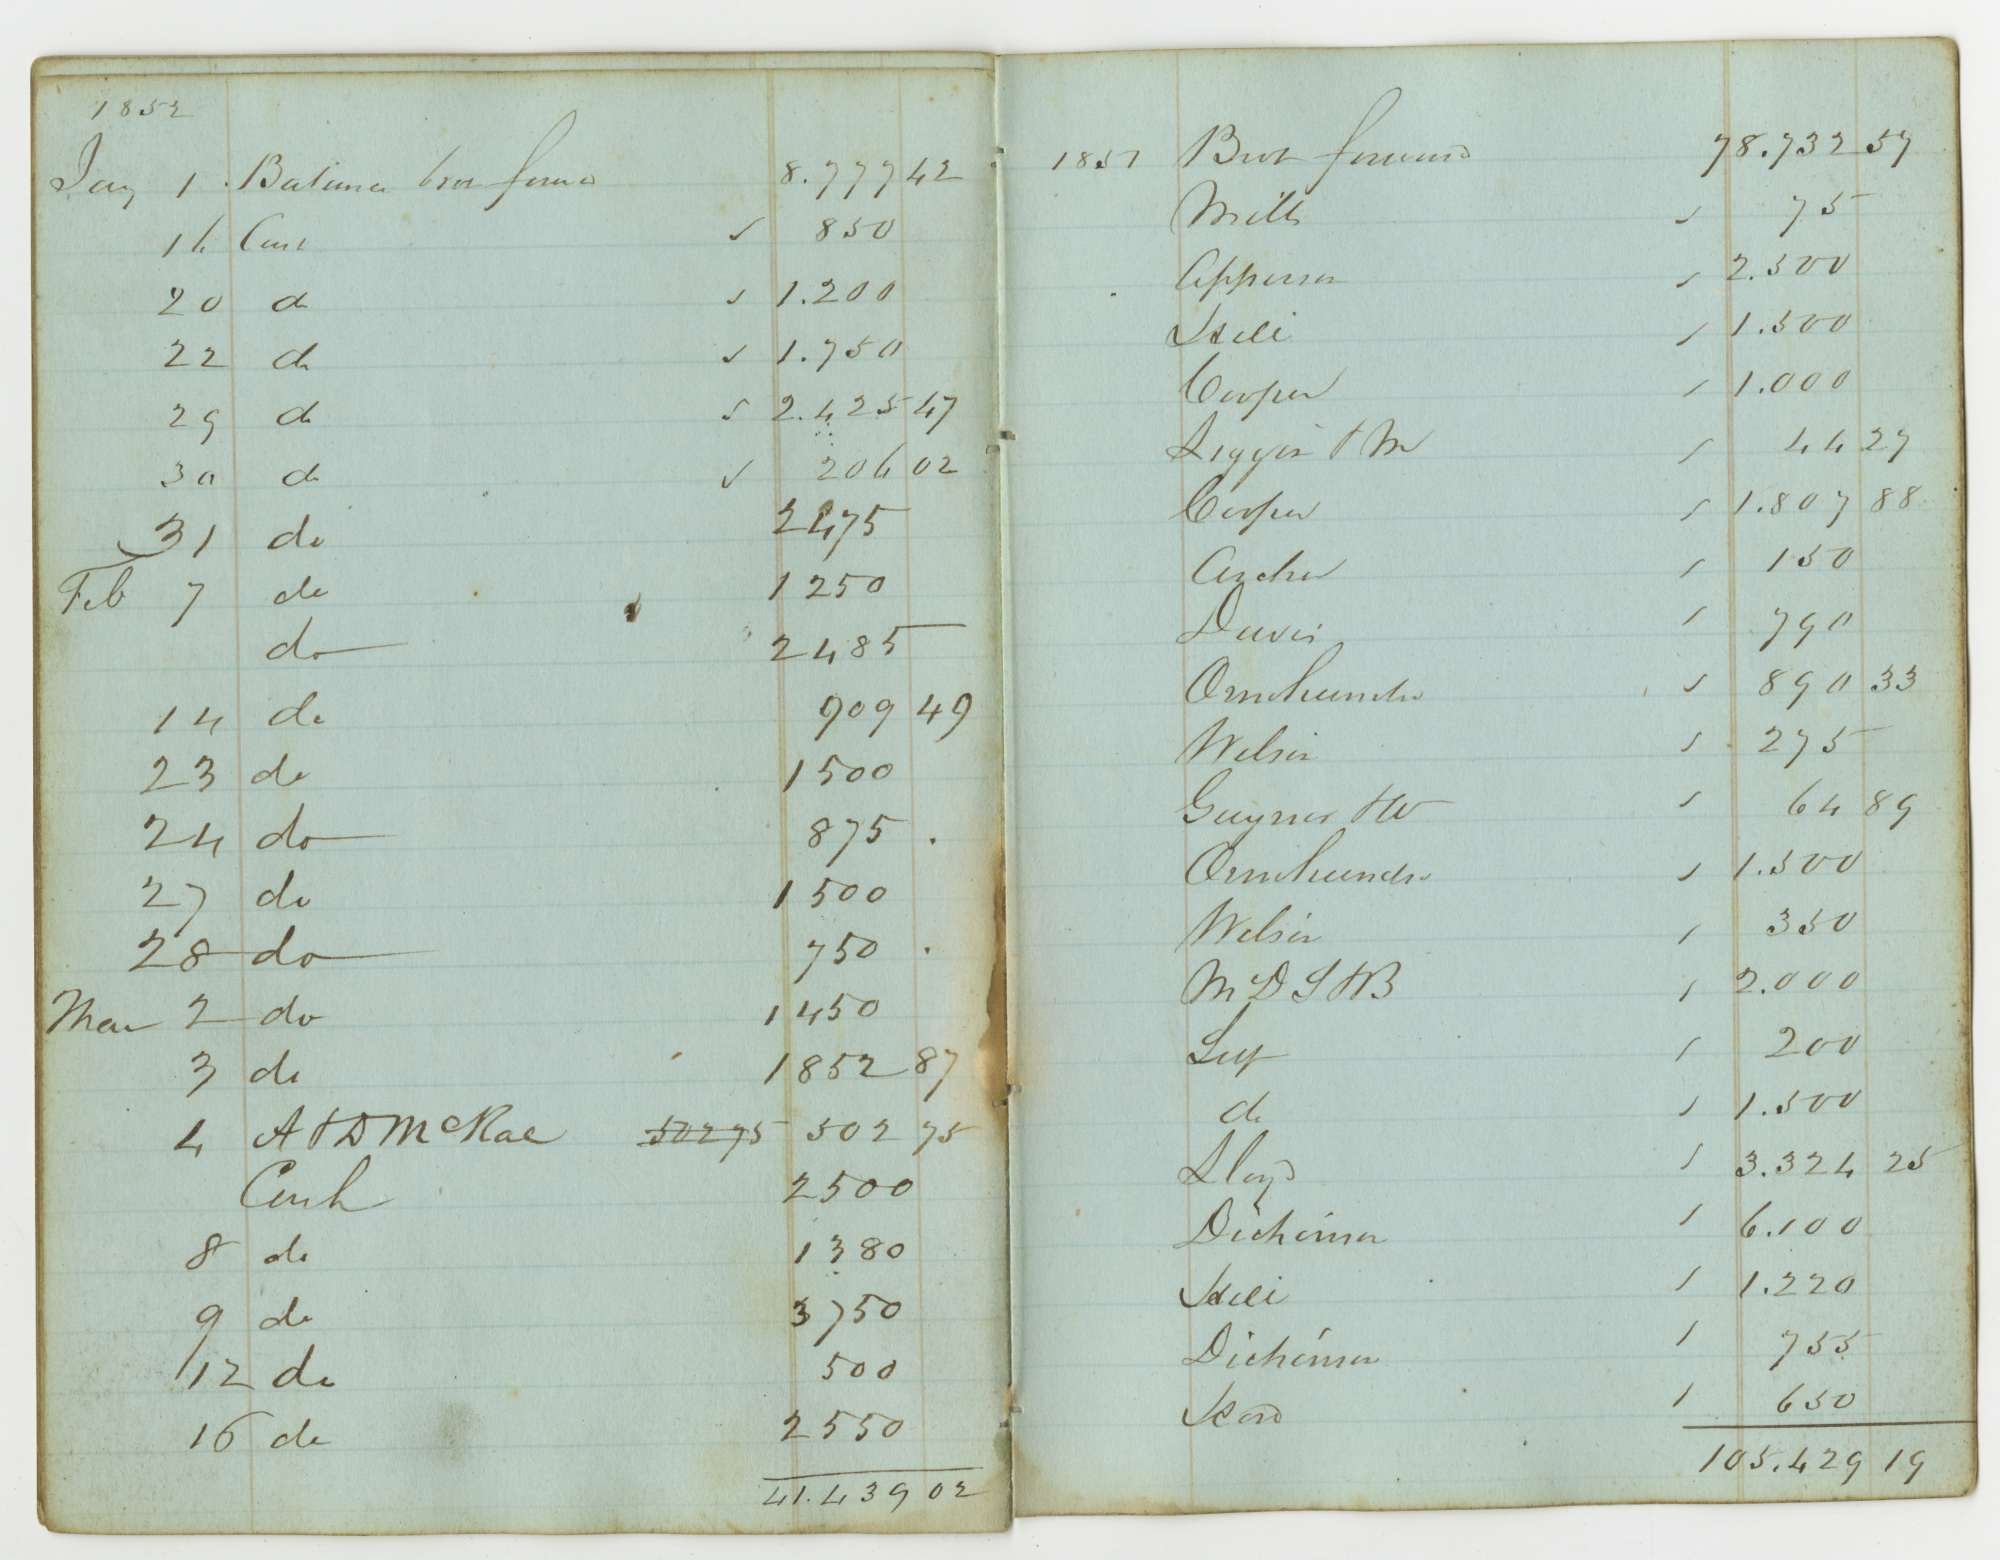 1852
Jany 1 Balance brot forwd 8.777 42
16 Cash ✓ 850
20 do ✓ 1.200
22 do ✓ 1.750
29 do ✓ 2.425 47
30 do ✓ 206 02
31 do 2475
Feb 7 do 1250
do 2485
14 do 909 49
23 do 1500
24 do 875
27 do 1500
28 do 750
Mar 2 do 1450
3 do 1852 87
4 A & D McRae 50275 502 75
Cash 2500
8 do 1380
9 do 3750
12 do 500
16 do 2550
41.439 02
1851 Brot forward 78.732 57
Mills ✓ 75
Apperson ✓ 2.500
✓ 1.500
Cooper ✓ 1.000
Liggin & M ✓ 44 27
Cooper ✓ 1.807 88
Archer ✓ 150
Davis ✓ 790
Omohundro ✓ 890 33
Nelson ✓ 275
✓ 64 89
Omohundro ✓ 1.500
Nelson ✓ 350
M D S & B ✓ 2.000
✓ 200
do ✓ 1.500
Lloyd ✓ 3.324 25
Dickinson ✓ 6.100
✓ 1.220
Dickinson ✓ 755
✓ 650
105.429 19